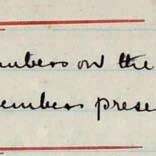 mbers on the
embers prese